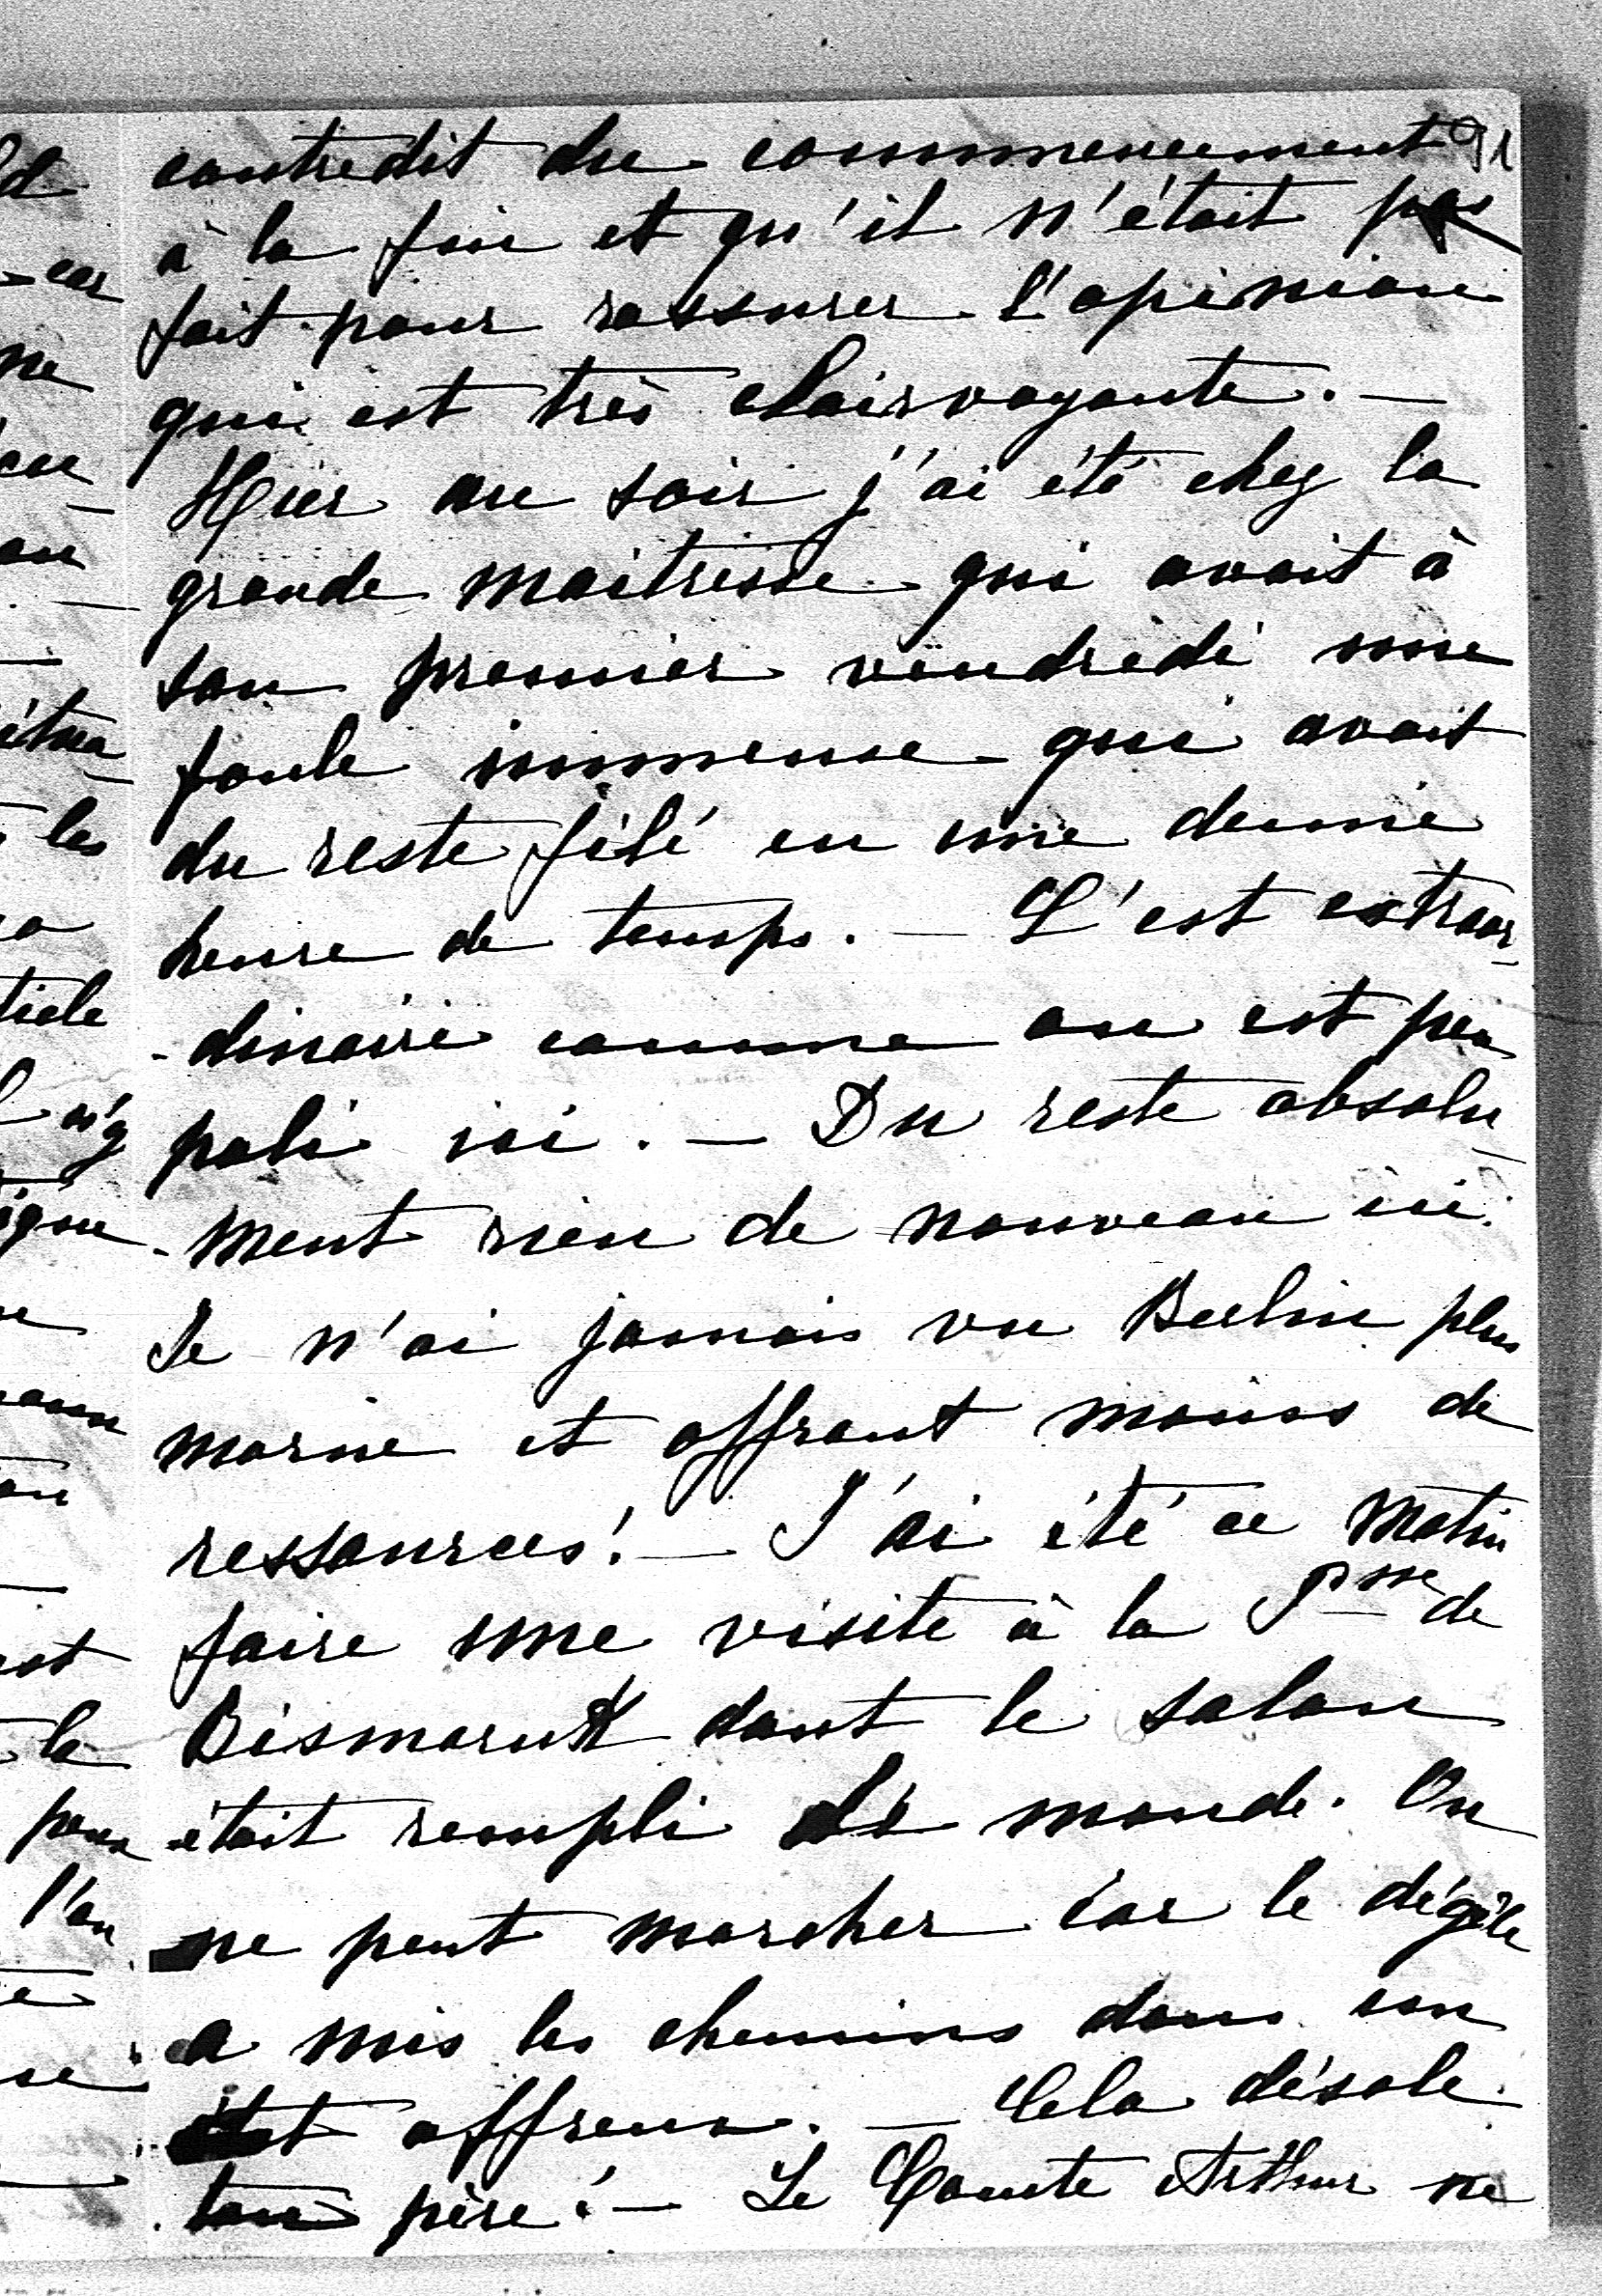 91
contredit du commencement
à la fin et qu'il n'était pas
fait pour rassurer l'opinion
qui est très clairvoyante. —
Hier au soir j'ai été chez la
grande maitresse qui avait à
son premier vendredi une
foule immense qui avait
du reste filé en une demie
heure de temps. — C'est extraor-
-dinaire comme on est peu
poli ici. — Du reste absolu-
-ment rien de nouveau ici.
Je n'ai jamais vu Berlin plus
morne et offrant moins de
ressources! — J'ai été ce matin
faire une visite à la Psse de
Bismarck dont le salon
était rempli de monde. On
ne peut marcher car le dégèle
a mis les chemins dans un
état affreux. — Cela désole
ton père! — Le Comte Arthur ne